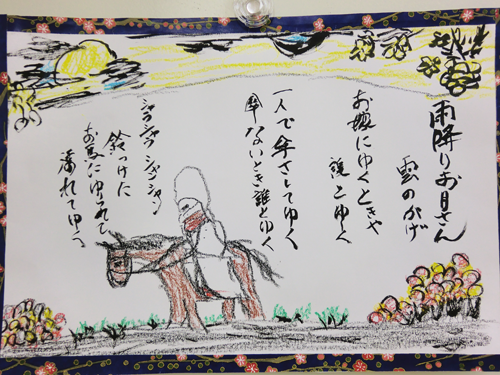 雨降りお月さん
雲のかげ
お嫁にゆくときゃ
誰とゆく
一人で傘さしてゆく
傘ないとき誰とゆく
シャラシャラ シャンシャン
鈴つけた
お馬にゆられて
濡れてゆく